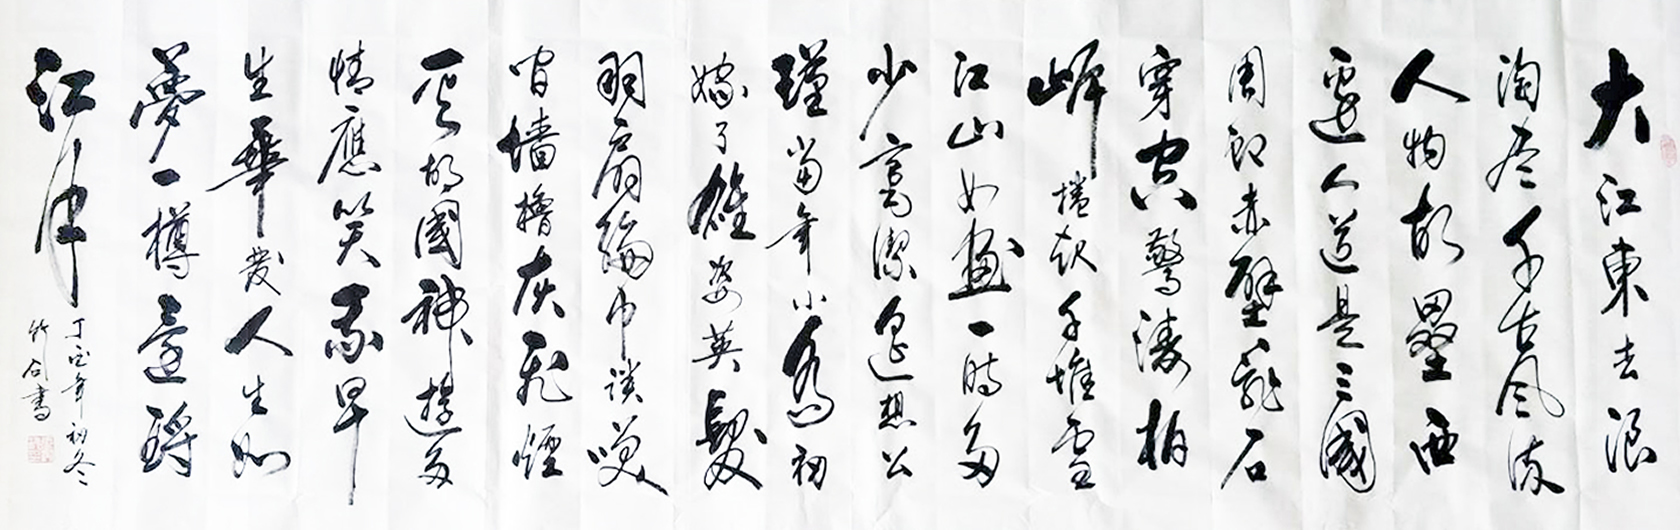 大江東去浪
淘尽千古风流
人物故壘西
邊人道是三國
周郎赤壁乱石
穿空驚濤拍
岸捲起千堆雪
江山如畫一時多
少豪傑遥想公
瑾當年小喬初
嫁了雄姿英發
羽扇綸巾談咲
间墻櫓灰飛煙
灭故國神遊多
情應笑我早
生華發人生如
夢一樽還酹
江月
丁酉年初冬
竹書